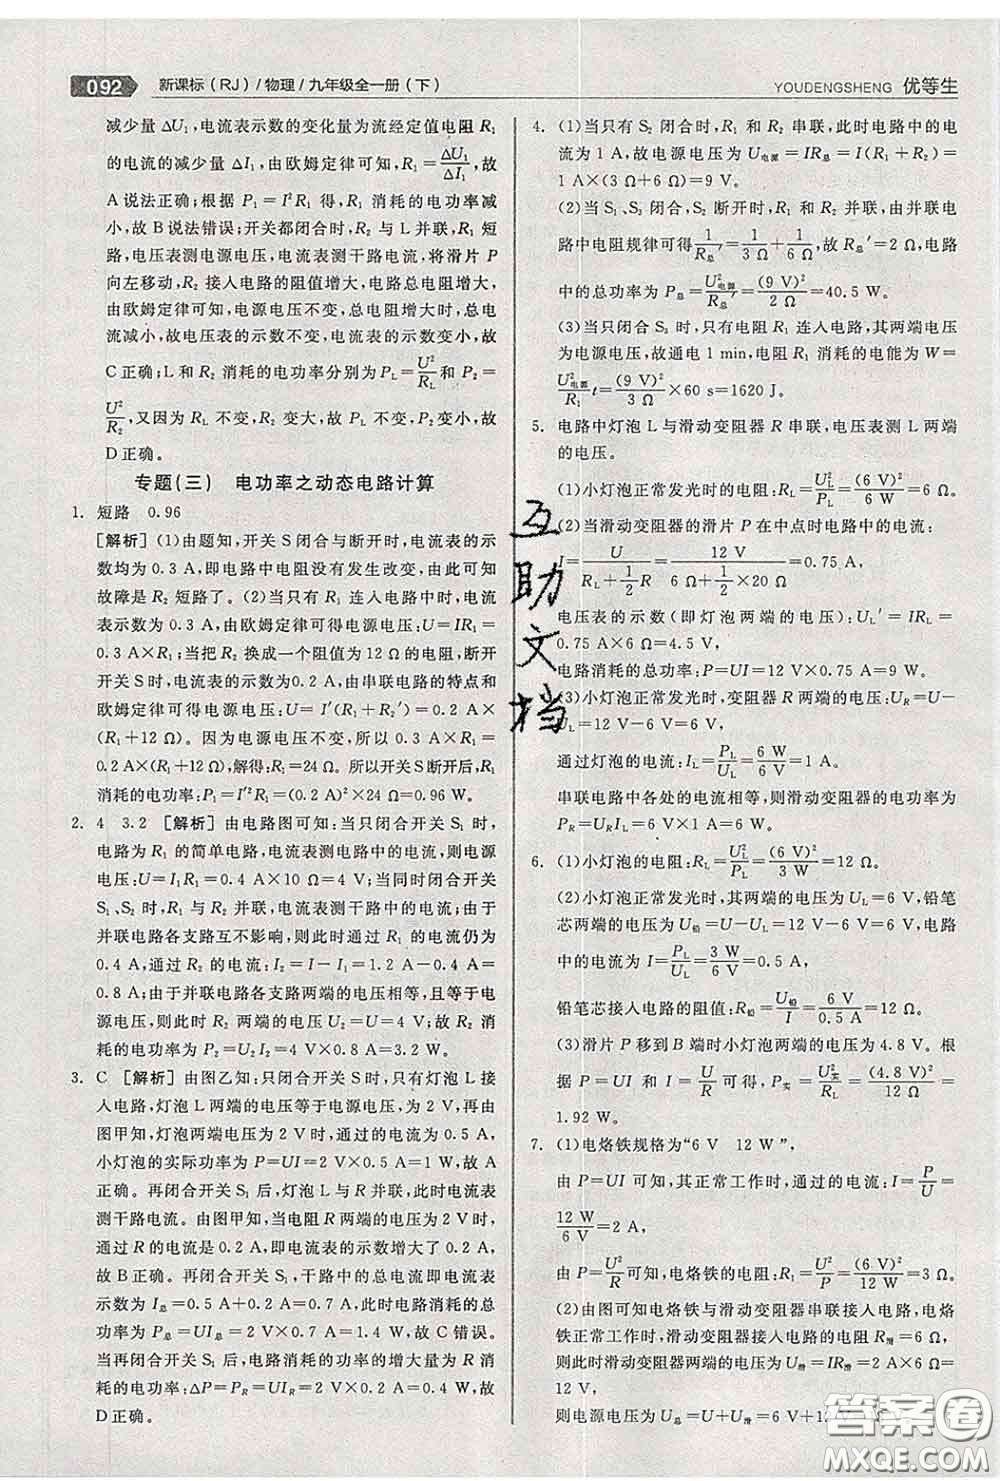 092 新课标（RJ）/物理/九年级全一册（下）
YOUDENGSHENG 优等生
减少量 ΔU₁，电流表示数的变化量为流经定值电阻 R₁
的电流的减少量 ΔI₁，由欧姆定律可知，R₁=ΔU₁/ΔI₁，故
A说法正确；根据 P₁=I²R₁ 得，R₁ 消耗的电功率减
小，故 B说法错误；开关都闭合时，R₂ 与 L 并联，R₁ 短
路，电压表测电源电压，电流表测干路电流，将滑片 P
向左移动，R₂ 接入电路的阻值增大，电路总电阻增大，
由欧姆定律可知，电源电压不变，总电阻增大，总电
流减小，故电压表的示数不变，电流表的示数变小，故
C正确；L和 R₂ 消耗的电功率分别为 P_L=U²/R_L和 P₂=
U²/R₂，又因为 R_L 不变，R₂ 变大，故 P_L 不变，P₂ 变小，故
D正确。
专题(三) 电功率之动态电路计算
1. 短路 0.96
[解析] (1)由题知，开关S闭合与断开时，电流表的示
数均为 0.3 A，即电路中电阻没有发生改变，由此可知
故障是 R₂ 短路了。(2)当只有 R₁ 连入电路中时，电流
表示数为 0.3 A，由欧姆定律可得电源电压：U=IR₁=
0.3 A×R₁；当把 R₂ 换成一个阻值为 12 Ω 的电阻，断开
开关S时，电流表的示数为0.2 A，由串联电路的特点和
欧姆定律可得电源电压：U=I′(R₁+R₂′)=0.2 A×
(R₁+12 Ω)。因为电源电压不变，所以 0.3 A×R₁=
0.2 A×(R₁+12 Ω)，解得：R₁=24 Ω。所以开关S断开后，R₁
消耗的电功率：P₁=I′²R₁=(0.2 A)²×24 Ω=0.96 W。
2. 4 3.2 [解析] 由电路图可知：当只闭合开关 S₁ 时，
电路为 R₁ 的简单电路，电流表测电路中的电流，则电源
电压：U=I₁R₁=0.4 A×10 Ω=4 V；当同时闭合开关
S₁、S₂ 时，R₁ 与 R₂ 并联，电流表测干路中的电流；由于
并联电路各支路互不影响，则此时通过 R₁ 的电流仍为
0.4 A，通过 R₂ 的电流：I₂=I－I₁=1.2 A－0.4 A=
0.8 A；由于并联电路各支路两端的电压相等，且等于电
源电压，则此时 R₂ 两端的电压 U₂=U=4 V；故 R₂ 消
耗的电功率为 P₂=U₂I₂=4 V×0.8 A=3.2 W。
3. C [解析] 由图乙知：只闭合开关 S时，只有灯泡 L 接
入电路，灯泡 L 两端的电压等于电源电压，为 2 V，再由
图甲知，灯泡两端电压为 2 V时，通过的电流为 0.5 A，
小灯泡的实际功率为 P=UI=2 V×0.5 A=1 W，故 A
正确。再闭合开关 S₁ 后，灯泡 L 与定值电阻并联，电流表
测干路电流。由图甲知，当电阻 R 两端的电压为 2 V时，
通过 R 的电流是 0.2 A，故电流表的示数增大了 0.2 A，
故 B正确。再闭合开关 S₁，干路中的总电流即电流表
示数为 I总=0.5 A+0.2 A=0.7 A，此时电路消耗的总
功率为 P总=UI总=2 V×0.7 A=1.4 W，故 C错误。
当再闭合开关 S₁ 后，电路消耗的功率的增大量为 R 的
功率：ΔP=P_R=UI_R=2 V×0.2 A=0.4 W，故
D正确。
4. (1)当只有 S₂ 闭合时，R₁ 和 R₂ 串联，此时电路中的电
流为 1 A，故电源电压为 U电源=IR总=I(R₁+R₂)=
1 A×(3 Ω+6 Ω)=9 V。
(2)当 S₁、S₃ 闭合，S₂ 断开时，R₁ 和 R₂ 并联，由并联电
路中电阻规律可得1/R总′=1/3 Ω+1/6 Ω，故 R总′=2 Ω，电路
中的总功率为 P总=U²电源/R总′=(9 V)²/2 Ω=40.5 W。
(3)当只闭合 S₃ 时，只有电阻 R₁ 连入电路，其两端电压
为电源电压，故通电 1 min，电阻 R₁ 消耗的电能为 W=
U²电源/R₁ t=(9 V)²/3 Ω×60 s=1620 J。
5. 电路中灯泡 L 与滑动变阻器 R 串联，电压表测 L 两端
的电压。
(1)小灯泡正常发光时的电阻：R_L=U_L²/P_L=(6 V)²/6 W=6 Ω。
(2)当滑动变阻器的滑片 P 在中点时电路中的电流：
I=U/(R_L+1/2 R)=12 V/(6 Ω+1/2×20 Ω)=0.75 A，
电压表的示数(即灯泡两端的电压)：U_L′=IR_L=
0.75 A×6 Ω=4.5 V，
电路消耗的总功率：P=UI=12 V×0.75 A=9 W。
(3)小灯泡正常发光时，变阻器 R 两端的电压：U_R=U－
U_L=12 V－6 V=6 V，
通过灯泡的电流：I_L=P_L/U_L=6 W/6 V=1 A，
串联电路中各处的电流相等，则滑动变阻器的电功率为
P_R=U_RI_L=6 V×1 A=6 W。
6. (1)小灯泡的电阻：R_L=U_L²/P_L=(6 V)²/3 W=12 Ω。
(2)小灯泡正常发光时，其两端的电压为 U_L=6 V，铅笔
芯两端的电压为 U铅=U－U_L=12 V－6 V=6 V，电路
中的电流为 I=P_L/U_L=3 W/6 V=0.5 A，
铅笔芯接入电路的阻值：R铅=U铅/I=6 V/0.5 A=12 Ω。
(3)滑片 P 移到 B 端时小灯泡两端的电压为 4.8 V。根
据 P=UI 和 I=U/R可得，P实=U实²/R_L=(4.8 V)²/12 Ω=
1.92 W。
7. (1)电烙铁规格为“6 V 12 W”，
由 P=UI 可知，其正常工作时，通过的电流：I=P/U=
12 W/6 V=2 A，
由 P=U²/R可知，电烙铁的电阻：R₁=U²/P=(6 V)²/12 W=3 Ω。
(2)由图可知电烙铁与滑动变阻器串联接入电路，电烙
铁正常工作时，滑动变阻器接入电路的电阻 R滑=6 Ω，
则此时滑动变阻器两端的电压：U滑=IR滑=2 A×6 Ω=
12 V，
则电源电压为 U总=U+U滑=6 V+12 V
互助文档
答案圈
MXQE.COM